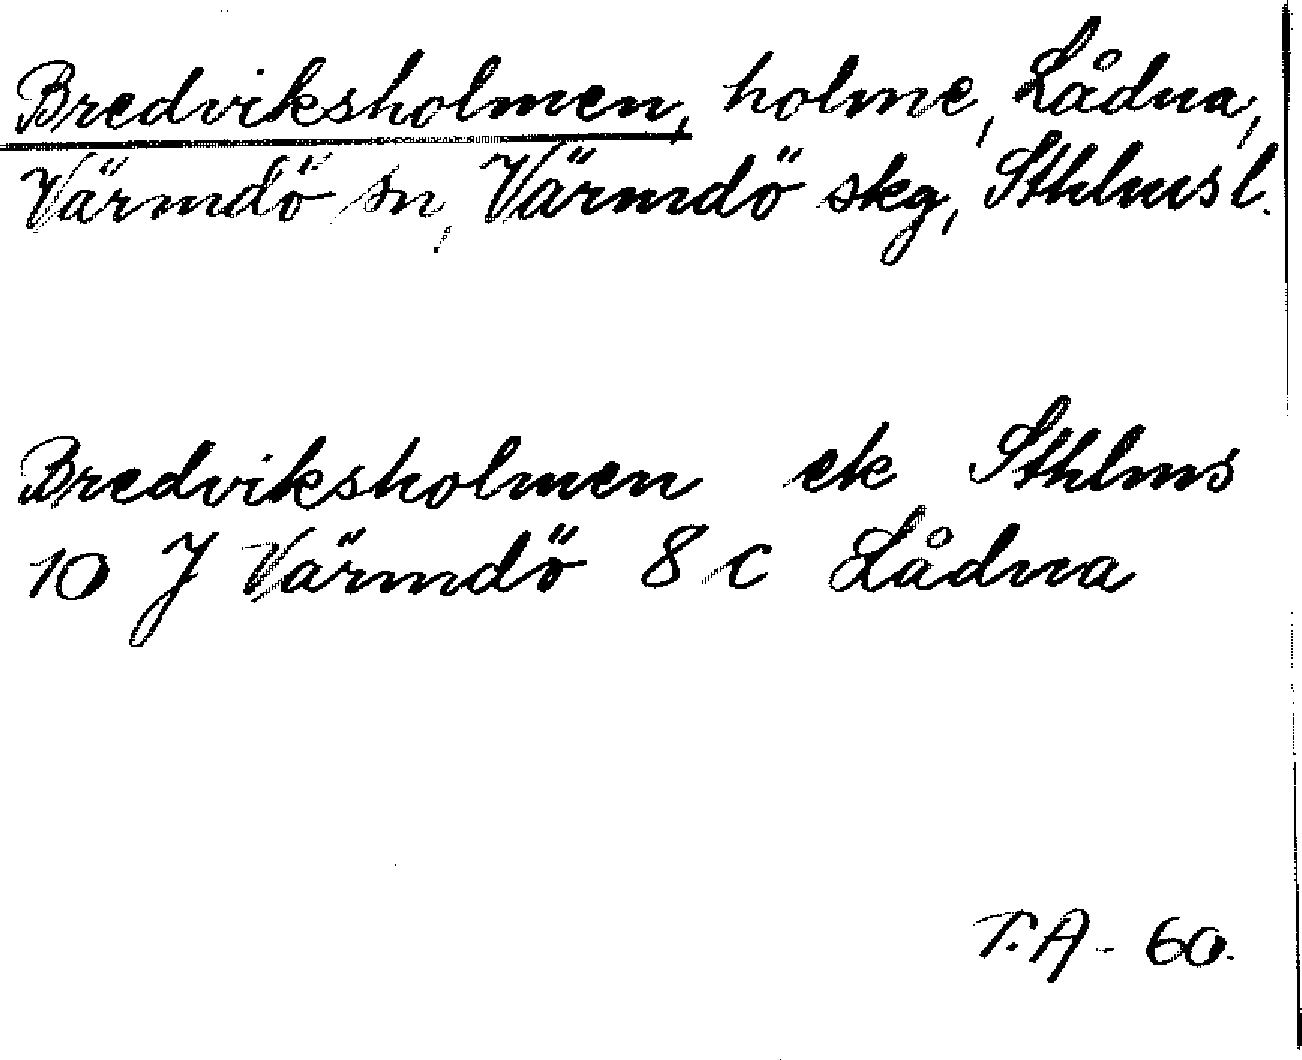 Bredviksholmen, holme, Lådna,
Värmdö sn, Värmdö skg, Sthlms l.
Bredviksholmen ek Sthlms
10 J Värmdö 8 c Lådna
T.A - 60.